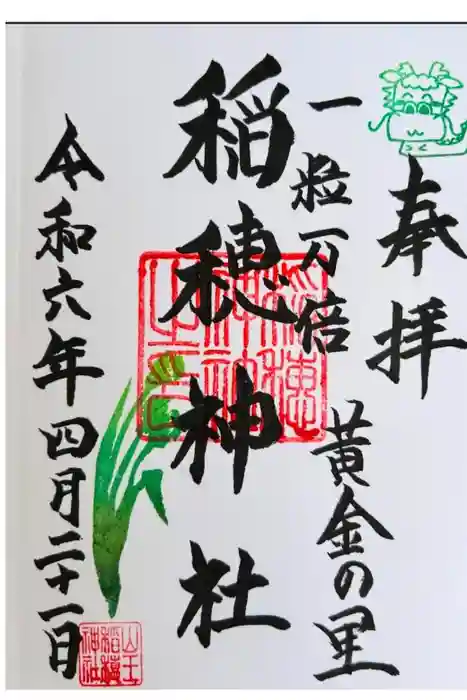 奉拝
一粒万倍
黄金の里
稲穂神社
令和六年四月二十一日
山王
稲穂
神社